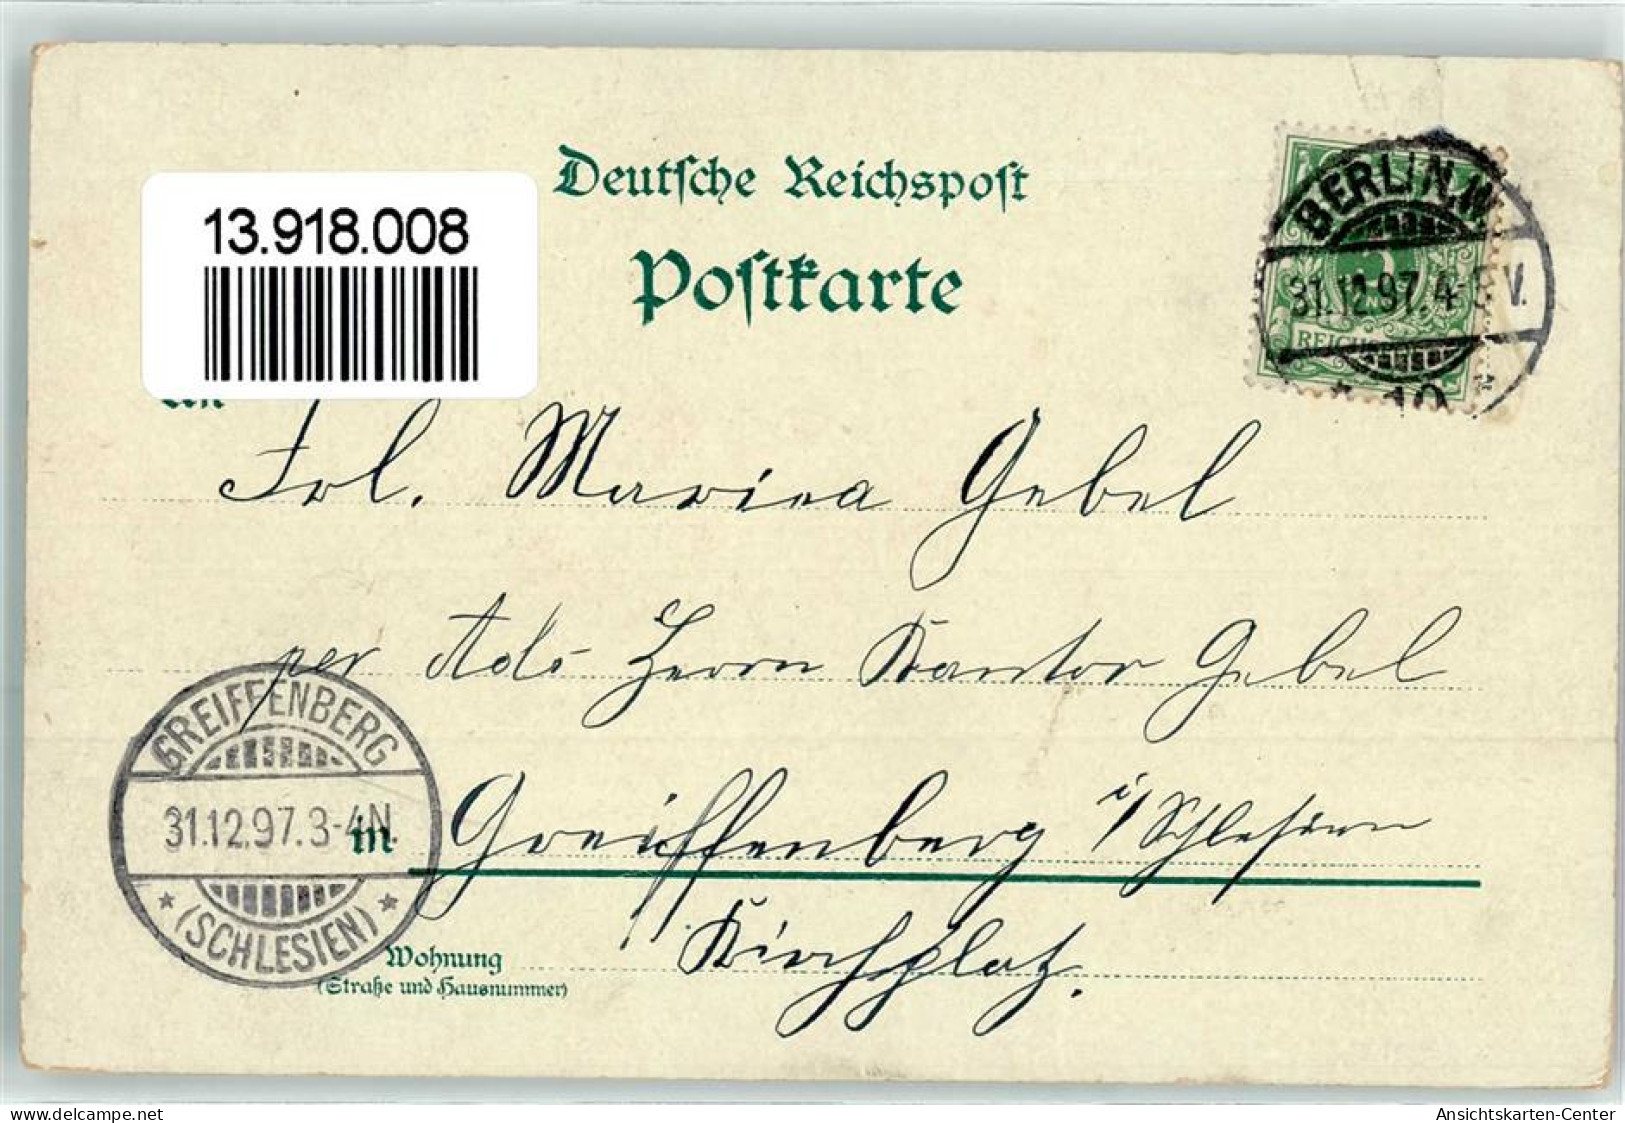 Deutsche Reichspost
Postkarte
13.918.008
BERLIN.W.
31.12.97.4-5V.
10
REICHSPOST
An
Frl. Marie Gebel
per Ads Herrn Kantor Gebel
GREIFFENBERG
31.12.97.3-4N.
(SCHLESIEN)
in Greiffenberg i/Schlesien
Kirchplatz.
Wohnung
(Straße und Hausnummer)
delcampe.net
marylou06
Ansichtskarten-Center